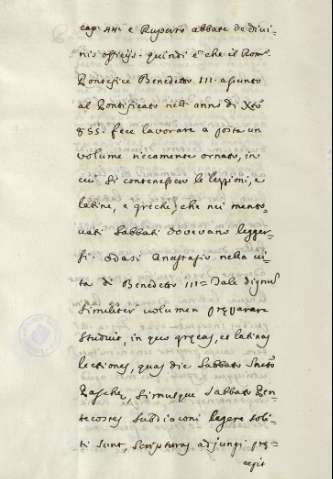 cap. 44: e Ruperto abbate de divi-
nis officijs. quindi è che il Rom.
Pontefice Benedetto III. assunto
al Pontificato nell'anno di Xto
855. fece lavorare a posta un
volume riccamente ornato, in
cui si contenessero le lezzioni, e
latine, e greche, che nei mento-
vati Sabbati dovevano legger-
si. Odasi Anastasio nella vi-
ta di Benedetto III = Tale dignus
similiter volumen præparare
studuit, in quo græcas, et latinas
lectiones, quas die Sabbato Sncto
Paschæ, simulque Sabbato Pen-
tecostes subdiaconi legere soli-
ti sunt, scripturas adjungi præ-
cepit